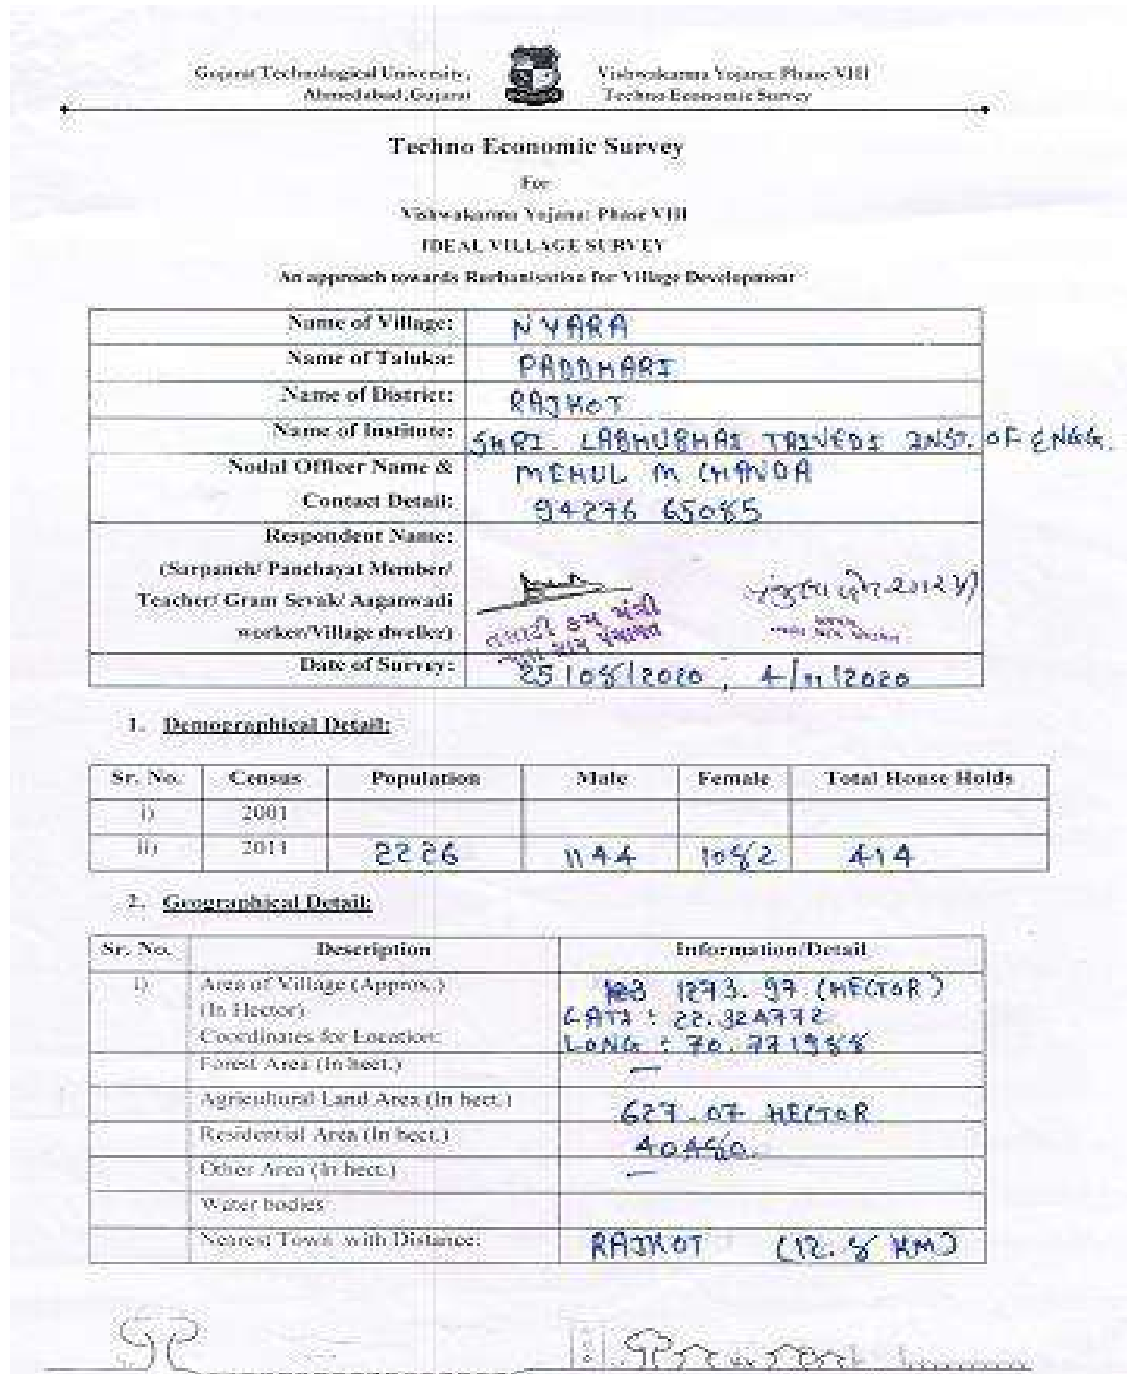 Gujarat Technological University, Vishwakarma Yojana: Phase VIII
Ahmedabad, Gujarat Techno Economic Survey
Techno Economic Survey
For
Vishwakarma Yojana: Phase VIII
IDEAL VILLAGE SURVEY
An approach towards Rurbanisation for Village Development
Name of Village: NYARA
Name of Taluka: PADDHARI
Name of District: RAJKOT
Name of Institute: SHRI. LABHUBHAI TRIVEDI INST. OF ENGG.
Nodal Officer Name & MEHUL M CHANDA
Contact Detail: 94276 65085
Respondent Name:
(Sarpanch/ Panchayat Member/
Teacher/ Gram Sevak/ Aaganwadi
worker/Village dweller)
તલાટી કમ મંત્રી
Date of Survey: 25/08/2020, 4/11/2020
1. Demographical Detail:
Sr. No. Census Population Male Female Total House Holds
i) 2001
ii) 2011 2226 1144 1082 414
2. Geographical Detail:
Sr. No. Description Information/Detail
i) Area of Village (Approx.) 1273.97 (HECTOR)
(In Hector) LATI : 22.324772
Coordinates for Location: LONG : 70.771988
Forest Area (In hect.) —
Agricultural Land Area (In hect.) 627.07 HECTOR
Residential Area (In hect.) 40480.
Other Area (In hect.) —
Water bodies
Nearest Town with Distance: RAJKOT (12.8 KM)